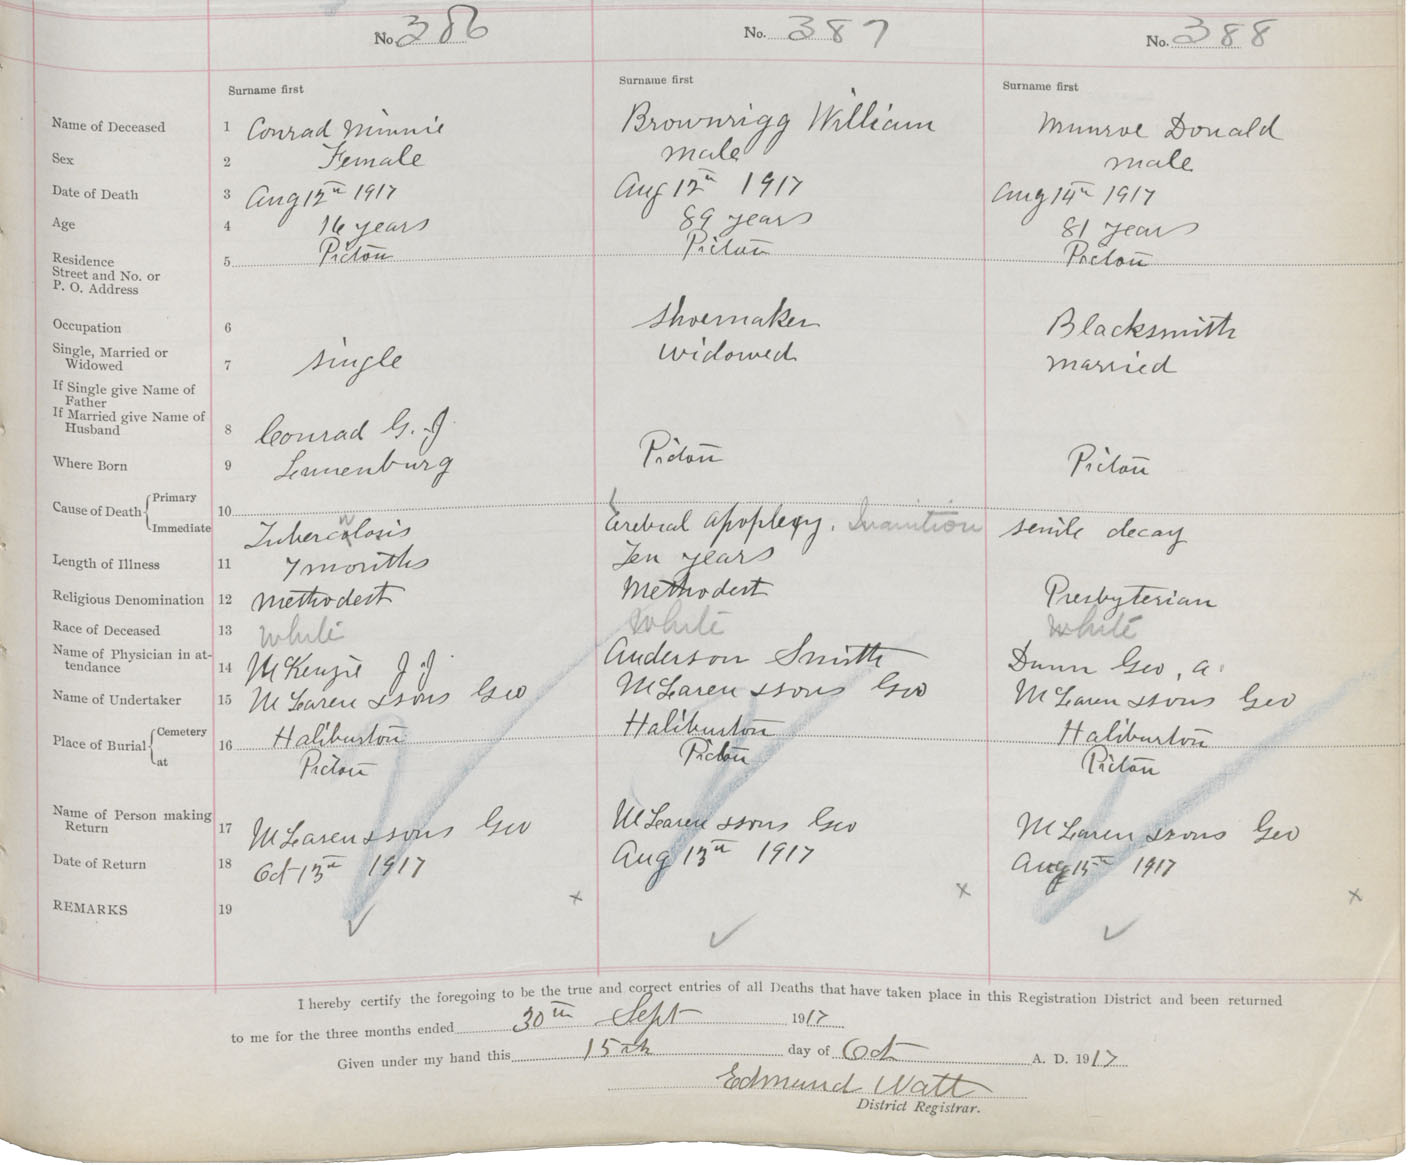 No. 386 No. 387 No. 388
Surname first Surname first Surname first
Name of Deceased 1 Conrad Minnie Brownrigg William Munroe Donald
Sex 2 Female male male
Date of Death 3 Aug 12th 1917 Aug 12th 1917 Aug 14th 1917
Age 4 16 years 89 years 81 years
Residence Street and No. or P. O. Address 5 Pictou Pictou Pictou
Occupation 6 Shoemaker Blacksmith
Single, Married or Widowed 7 Single Widowed married
If Single give Name of Father
If Married give Name of Husband 8 Conrad G. J.
Where Born 9 Lunenburg Pictou Pictou
Cause of Death { Primary Immediate 10 Tuberculosis Cerebral apoplexy. Inanition senile decay
Length of Illness 11 7 months Ten years
Religious Denomination 12 Methodist Methodist Presbyterian
Race of Deceased 13 White White White
Name of Physician in attendance 14 McKenzie J. J. Anderson Smith Dunn Geo. A.
Name of Undertaker 15 McLaren & Sons Geo McLaren & Sons Geo McLaren & Sons Geo
Place of Burial { Cemetery at 16 Haliburton Haliburton Haliburton
Pictou Pictou Pictou
Name of Person making Return 17 McLaren & Sons Geo McLaren & Sons Geo McLaren & Sons Geo
Date of Return 18 Oct 13th 1917 Aug 13th 1917 Aug 15th 1917
REMARKS 19
I hereby certify the foregoing to be the true and correct entries of all Deaths that have taken place in this Registration District and been returned
to me for the three months ended 30th Sept 1917
Given under my hand this 15th day of Oct A. D. 1917
Edmund Watt
District Registrar.